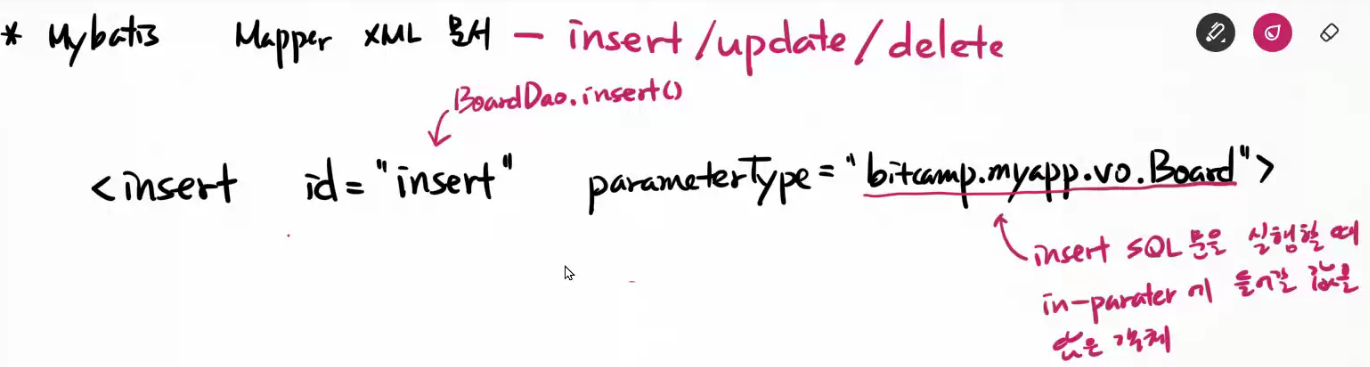 * Mybatis Mapper XML 문서 - insert/update/delete
BoardDao.insert()
<insert id="insert" parameterType="bitcamp.myapp.vo.Board">
insert SQL문을 실행할 때
in-parater에 들어갈 값을
담은 객체